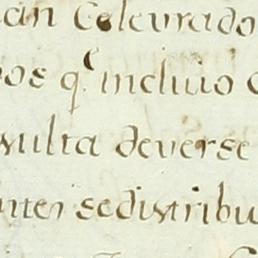 an Celeurado
os q.e incluio
sulta deverse
ntes se distribu